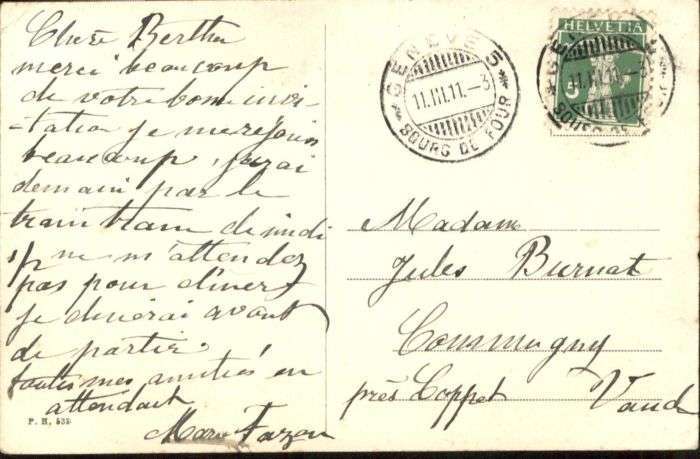 Chère Bertha
merci beaucoup
de votre bonne invi-
-tation je me rejouis
beaucoup, j'irai
demain par le
train tram de midi
ne m'attendez
pas pour diner
je dinerai avant
de partir.
toutes mes amitiés en
attendant
Marie Fazon
P. H. 532
GENÈVE 5
11.III.11.–3
BOURG DE FOUR
HELVETIA
GENÈVE 5
11.III.11.–3
BOURG DE FOUR
5
Madame
Jules Burnat
Commugny
près Coppet Vaud